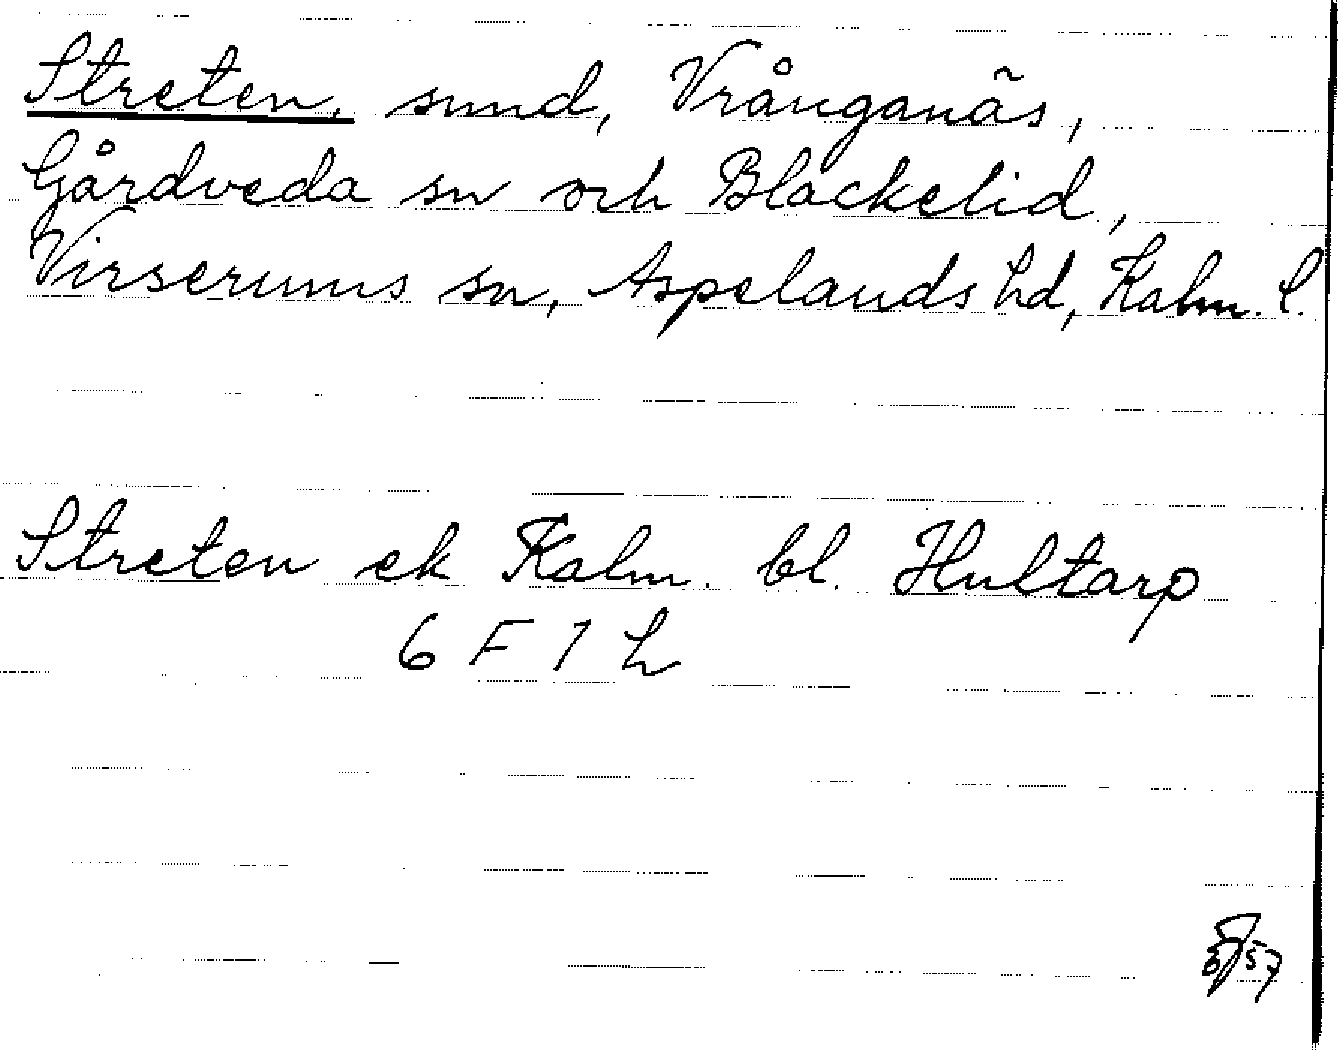 Streten, sund, Vrånganäs,
Gårdveda sn och Blackelid,
Virserums sn, Aspelands hd, Kalm. l.
Streten ek Kalm. bl. Hultarp
6 F 7 h